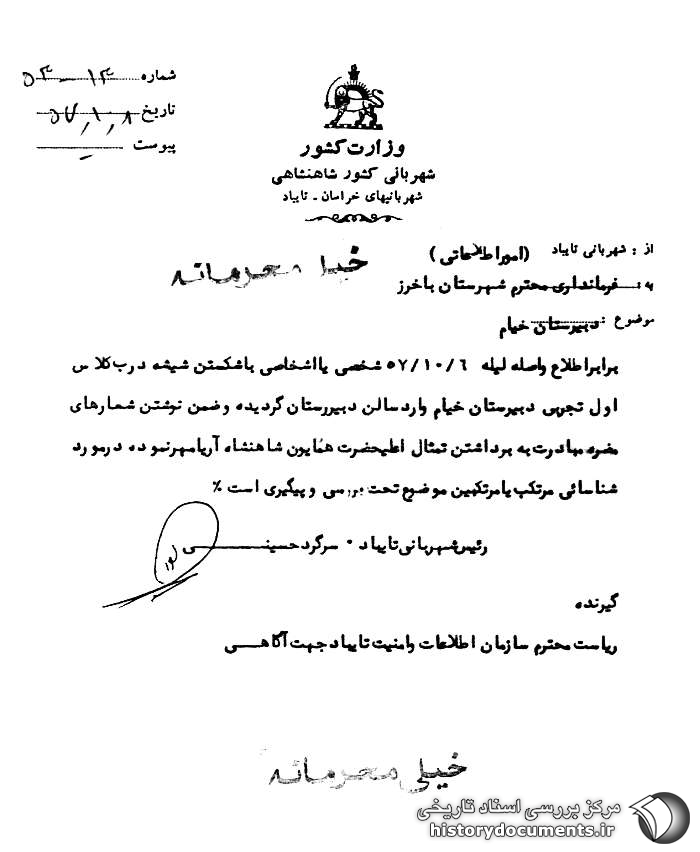 شماره ۱۴-۵۳
تاریخ ۵۷,۱۰,۸
پیوست -
وزارت کشور
شهربانی کشور شاهنشاهی
شهربانیهای خراسان - تایباد
از : شهربانی تایباد (امور اطلاعاتی)
خیلی محرمانه
به : فرمانداری محترم شهرستان باخرز
موضوع : دبیرستان خیام
برابر اطلاع واصله لیله ۵۷/۱۰/۶ شخصی یا اشخاصی با شکستن شیشه درب کلاس
اول تجربی دبیرستان خیام وارد سالن دبیررستان گردیده و ضمن نوشتن شعارهای
مضره مبادرت به برداشتن تمثال اعلیحضرت همایون شاهنشاه آریامهر نموده در مورد
شناسائی مرتکب یا مرتکبین موضوع تحت بررسی و پیگیری است ٪
رئیس شهربانی تایباد · سرگرد حسینی
گیرنده
ریاست محترم سازمان اطلاعات و امنیت تایباد جهت آگاهی
خیلی محرمانه
مرکز بررسی اسناد تاریخی
historydocuments.ir